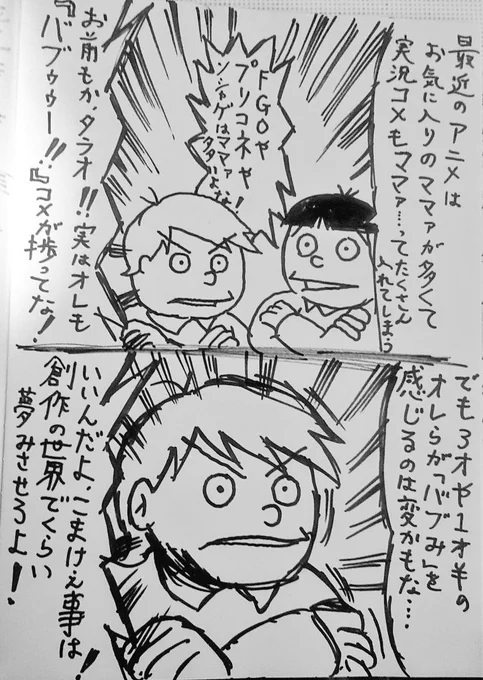 最近のアニメは
お気に入りのママァが多くて
実況コメもママァ…ってたくさん
入れてしまう
FGOや
プリコネや
ソシャゲはママァ
多いよな!
お前もか、タラオ!!実はオレも
『バブゥゥー!!』コメが捗ってな!
でも3才や1才半の
オレらが「バブみ」を
感じるのは変かもな…
いいんだよ、こまけぇ事は!
創作の世界でくらい
夢みさせろよ!